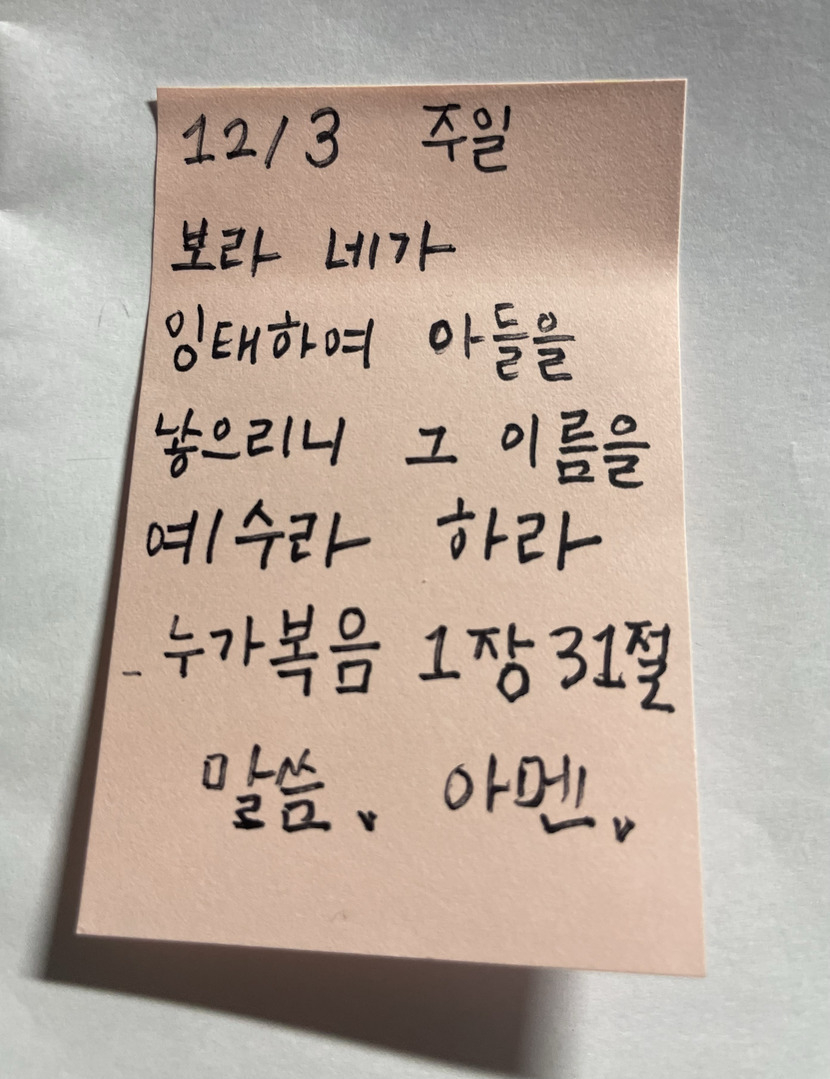 12/3 주일
보라 네가
잉태하여 아들을
낳으리니 그 이름을
예수라 하라
- 누가복음 1장 31절
말씀. 아멘.